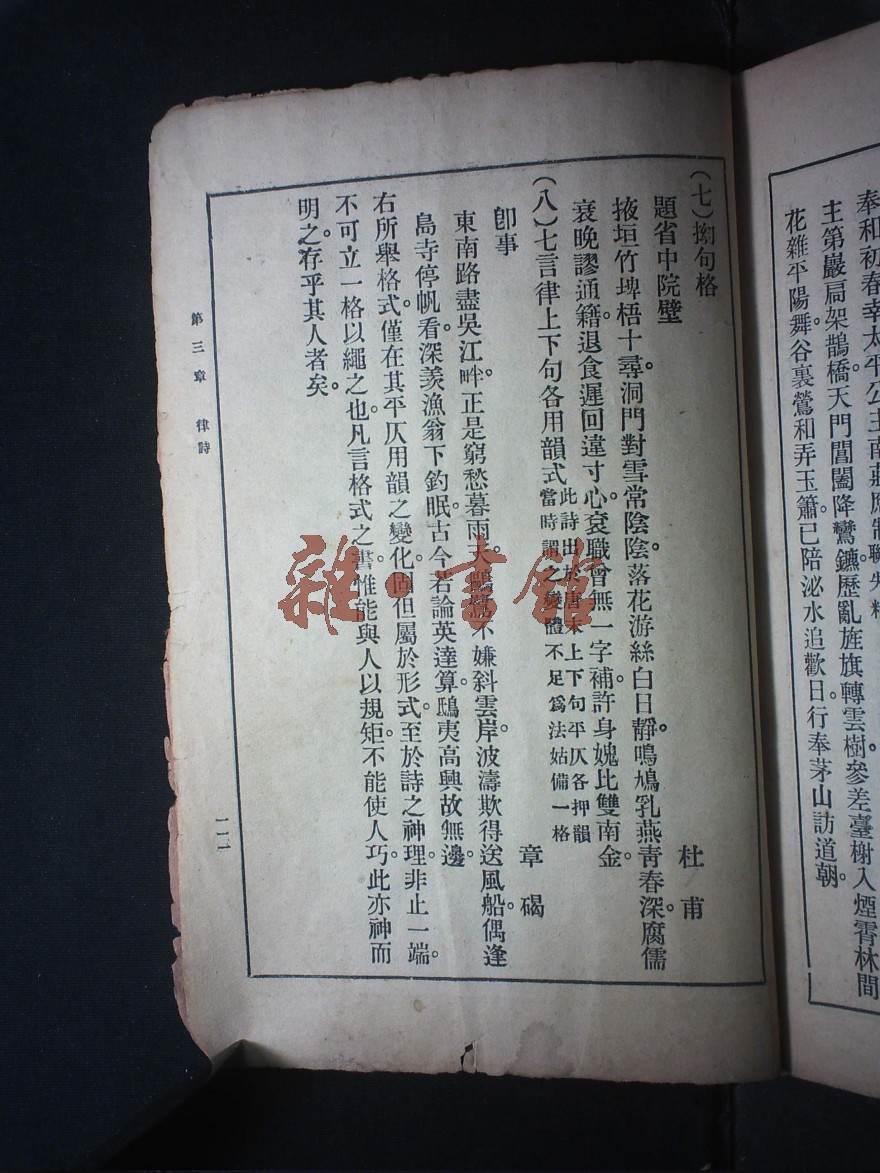 奉和初春幸太平公主南莊應制
主第巖扃架鵲橋天門閶闔降鸞鑣。歷亂旌旗轉雲樹。參差臺榭入煙霄。林間
花雜平陽舞。谷裏鶯和弄玉簫。已陪泌水追歡日。行奉茅山訪道朝。
(七)拗句格
題省中院壁 杜甫
掖垣竹埤梧十尋。洞門對雪常陰陰。落花游絲白日靜。鳴鳩乳燕青春深。腐儒
衰晚謬通籍。退食遲回違寸心。袞職曾無一字補。許身媿比雙南金。
(八)七言律上下句各用韻式 此詩出於唐末上下句平仄各押韻
當時謂之變體不足爲法姑備一格
卽事 章碣
東南路盡吳江畔。正是窮愁暮雨天。鷗鷺不嫌斜雲岸。波濤欺得送風船。偶逢
島寺停帆看。深羡漁翁下釣眠。古今若論英達算。鴟夷高興故無邊。
右所舉格式。僅在其平仄用韻之變化。固但屬於形式。至於詩之神理。非止一端。
不可立一格以繩之也。凡言格式之書。惟能與人以規矩。不能使人巧。此亦神而
明之。存乎其人者矣。
第三章 律詩
一一一
雜·書館